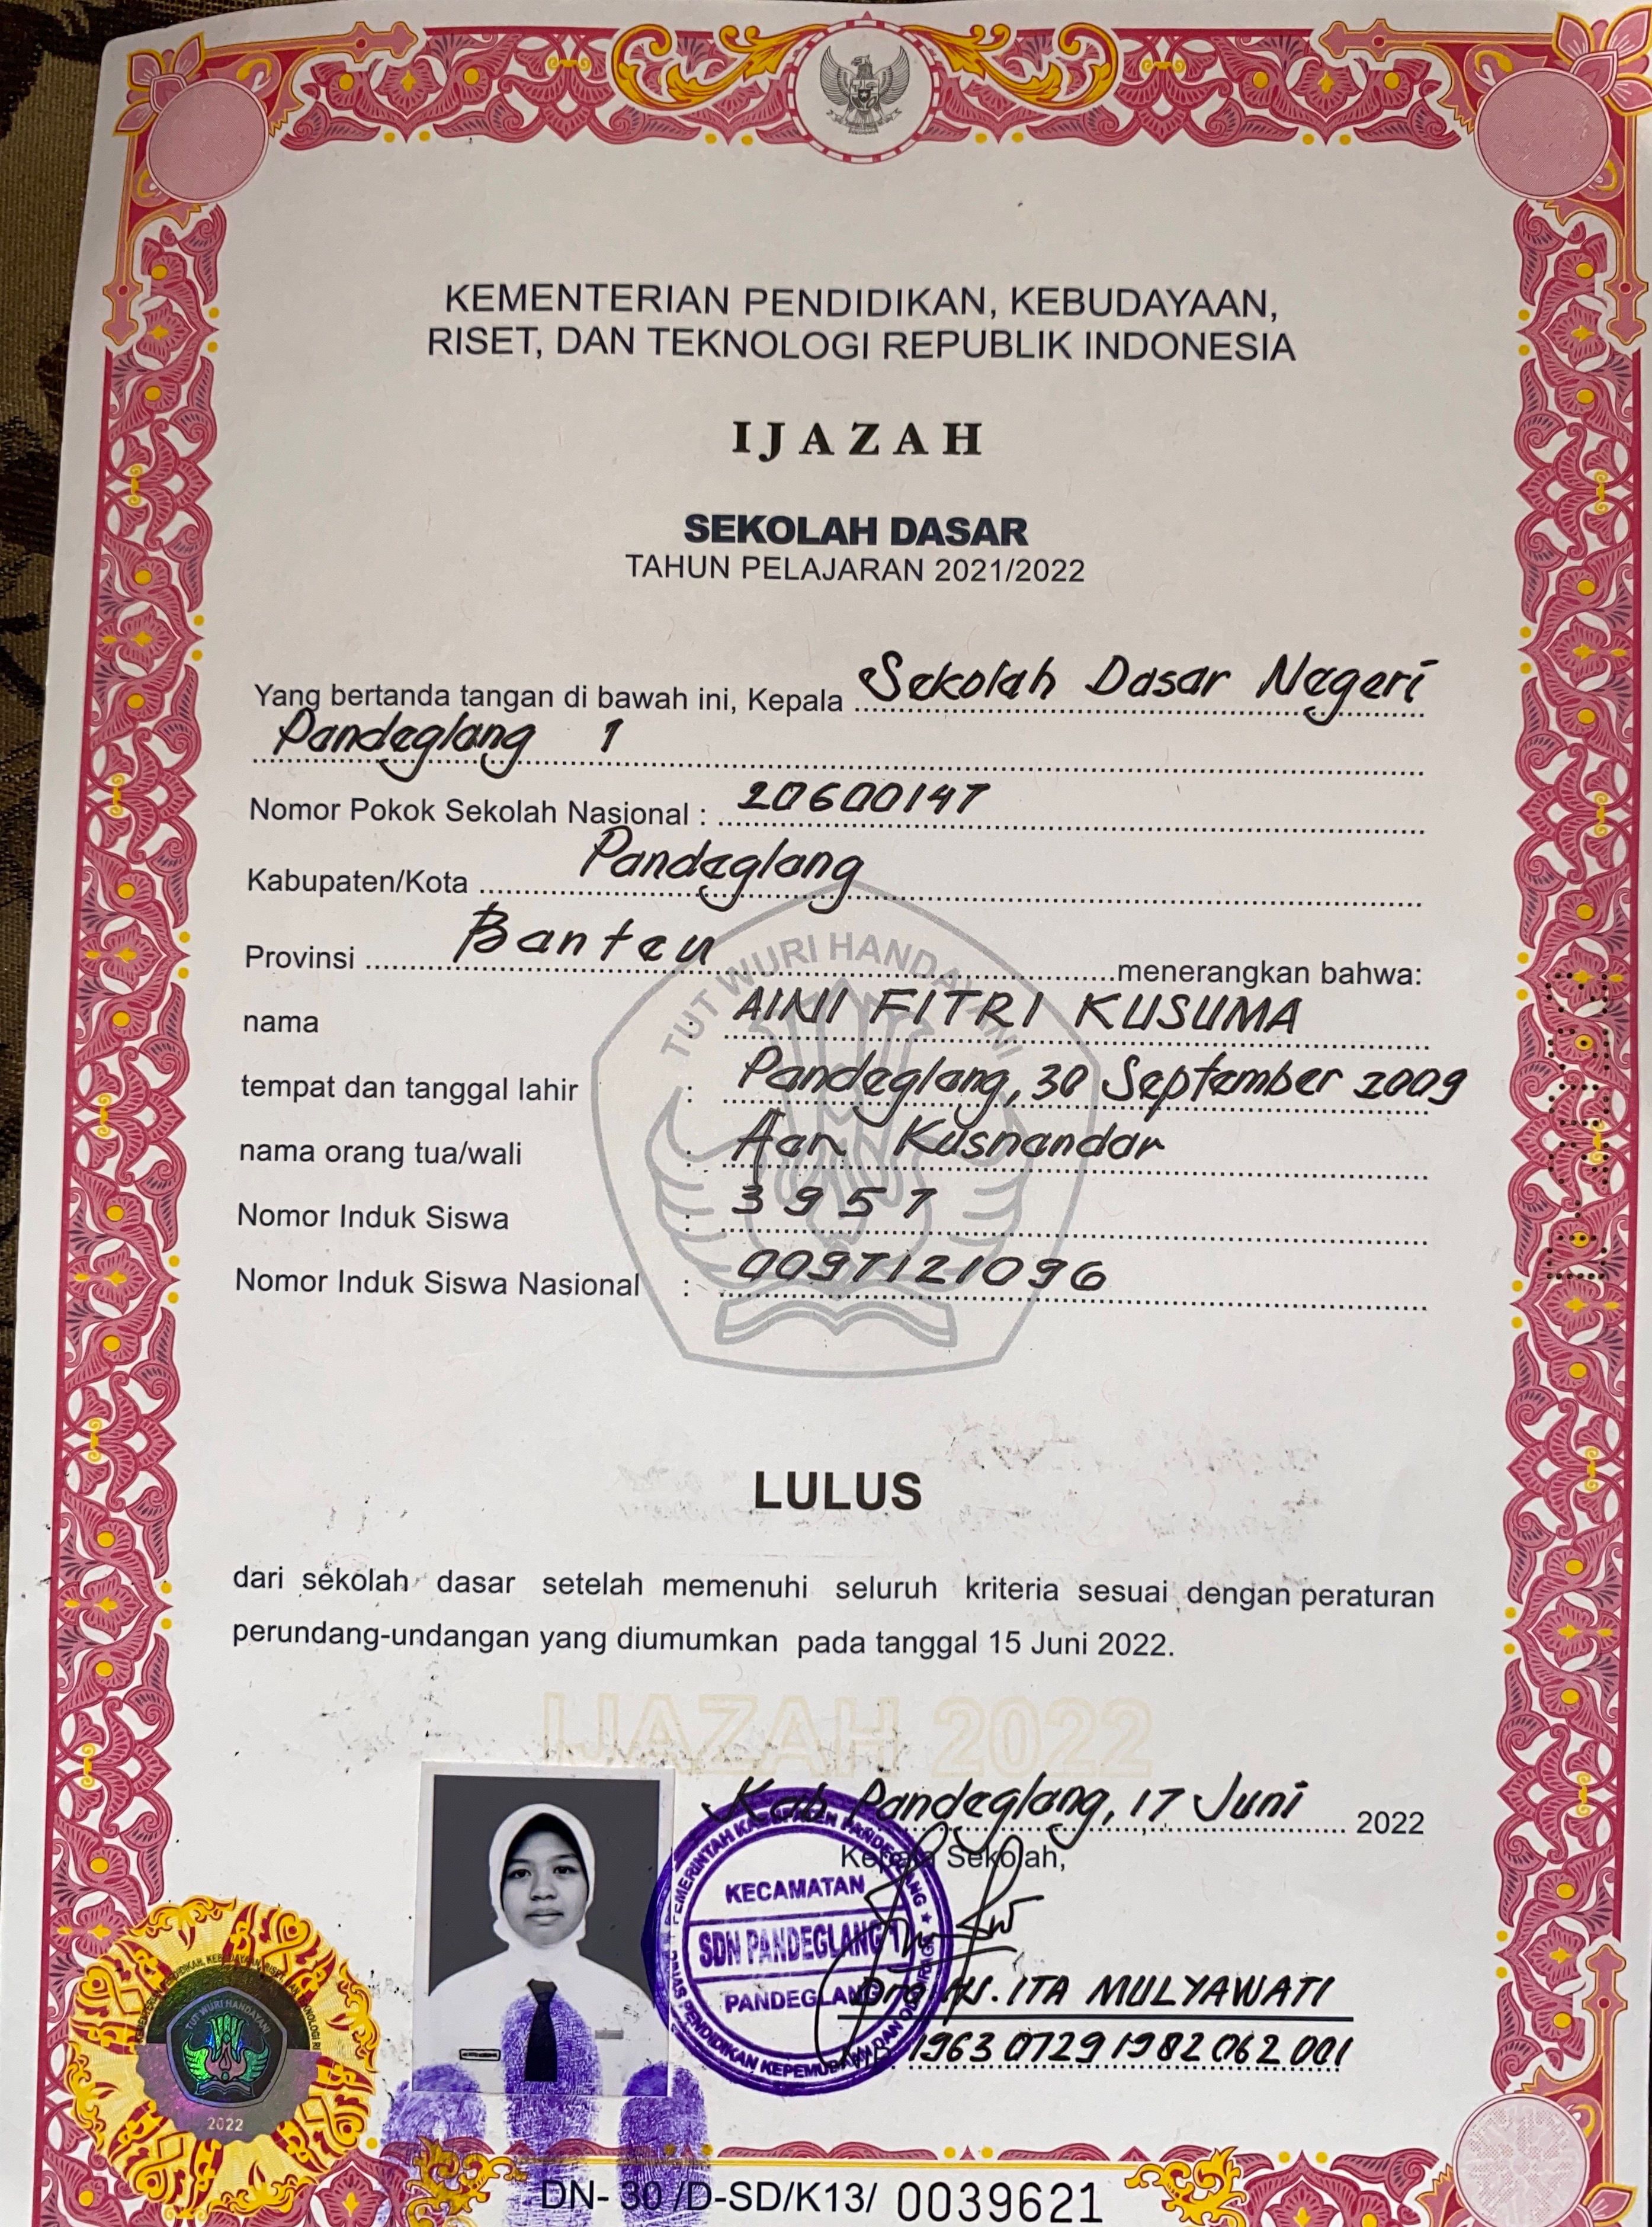 KEMENTERIAN PENDIDIKAN, KEBUDAYAAN,
RISET, DAN TEKNOLOGI REPUBLIK INDONESIA
IJAZAH
SEKOLAH DASAR
TAHUN PELAJARAN 2021/2022
Yang bertanda tangan di bawah ini, Kepala Sekolah Dasar Negeri
Pandeglang 1
Nomor Pokok Sekolah Nasional : 20600147
Kabupaten/Kota Pandeglang
Provinsi Banten menerangkan bahwa:
TUT WURI HANDAYANI
nama : AINI FITRI KUSUMA
tempat dan tanggal lahir : Pandeglang, 30 September 2009
nama orang tua/wali : Aan Kusnandar
Nomor Induk Siswa : 3957
Nomor Induk Siswa Nasional : 0097121096
LULUS
dari sekolah dasar setelah memenuhi seluruh kriteria sesuai dengan peraturan
perundang-undangan yang diumumkan pada tanggal 15 Juni 2022.
IJAZAH 2022
Kab Pandeglang, 17 Juni 2022
Kepala Sekolah,
PEMERINTAH KABUPATEN PANDEGLANG
KECAMATAN
SDN PANDEGLANG 1
PANDEGLANG
DINAS PENDIDIKAN KEPEMUDAAN DAN OLAHRAGA
ITA MULYAWATI
196307291982062001
TUT WURI HANDAYANI
2022
DN- 30 /D-SD/K13/ 0039621